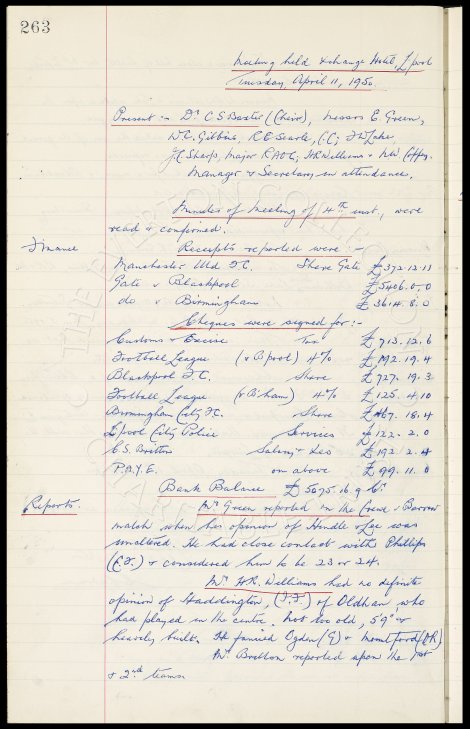 263
Meeting held Exchange Hotel, L/pool
Tuesday, April 11, 1950
Present :- Dr C S Baxter (Chair), Messrs E. Green,
W.C. Gibbins, R.E. Searle, J.C. Sharp, Major R A
H R Williams & N W Coffey.
Manager & Secretary in attendance.
Minutes of Meeting of 4th inst. were
read & confirmed.
Finance
Receipts reported were :-
Manchester Utd F.C. Share Gate £372.12.11
Gate v Blackpool £5406.0.0
do v Birmingham £3614.8.0
Cheques were signed for :-
Customs & Excise Tax £713.12.6
Football League (v B'pool) 4% £192.19.4
Blackpool F.C. Share £727.19.3
Football League (v B'ham) 4% £125.4.10
Birmingham City F.C. Share £467.18.4
L/pool City Police Services £122.2.0
C.S. Britton Salary & Les £192.2.4
P.A.Y.E. on above £99.11.0
Bank Balance £5675.16.9 Cr.
Reports.
Mr Green reported on the Crewe v Barrow
match when his opinion of Hindle & Lee was
unaltered. He had close contact with Phillips
& considered him to be 23 or 24.
Mr H.R. Williams had no definite
opinion of Haddington, (I.F.) of Oldham who
had played in the centre. Not too old, 5'9" &
heavily built. He fancied Ogden (G) & Mountford (OR)
Mr. Britton reported upon the 1st
& 2nd teams.